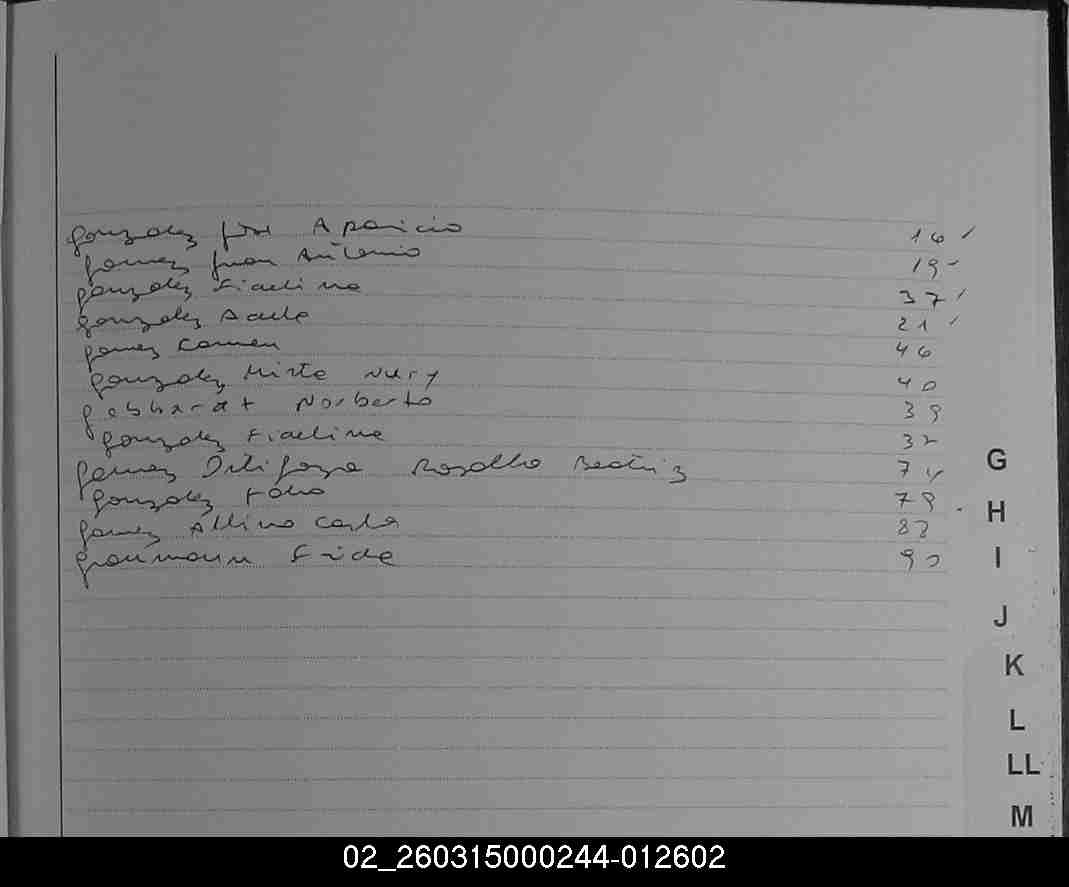 Gonzalez José Aparicio 16
Gomez Juan Antonio 19
Gonzalez Fidelina 37
Gonzalez Adela 21
Gomez Carmen 46
Gonzalez Mirta Nury 40
Gebhardt Norberto 39
Gonzalez Fidelina 32
Gomez Beatriz 74
Gonzalez Fabio 79
Gomez Albino Carlos
Fride 90
G
H
I
J
K
L
LL
M
02_260315000244-012602